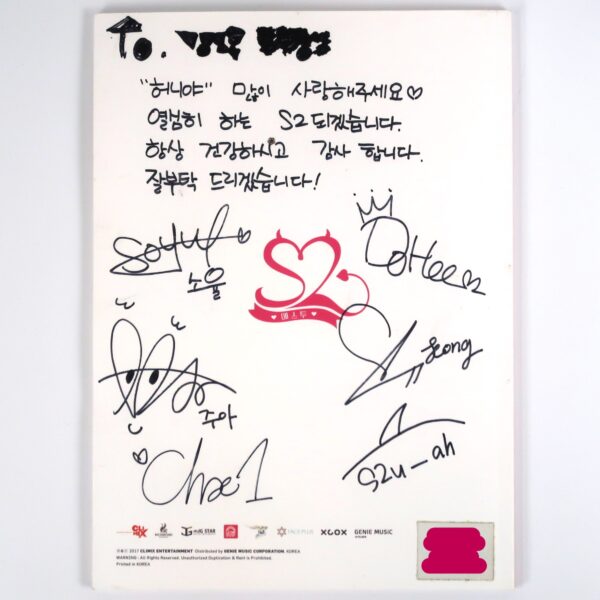 To.
"허니야" 많이 사랑해주세요♡
열심히 하는 S2되겠습니다.
항상 건강하시고 감사 합니다.
잘부탁 드리겠습니다!
Soyul♡
소율
DoHee
S2
에스투
Jeong
주아
Chae1
S2u_ah
CLIMIX
XOOX
GENIE MUSIC
2017 CLIMIX ENTERTAINMENT Distributed by GENIE MUSIC CORPORATION. KOREA
WARNING : All Rights Reserved. Unauthorized Duplication & Rent is Prohibited.
Printed in KOREA